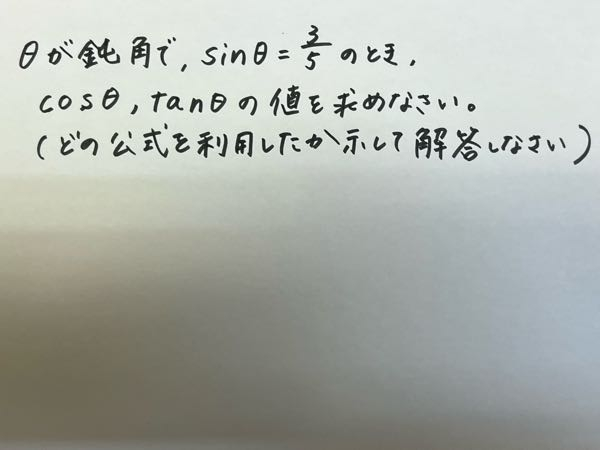 θが鈍角で, sinθ = 3/5 のとき,
cosθ, tanθの値を求めなさい。
(どの公式を利用したか示して解答しなさい)